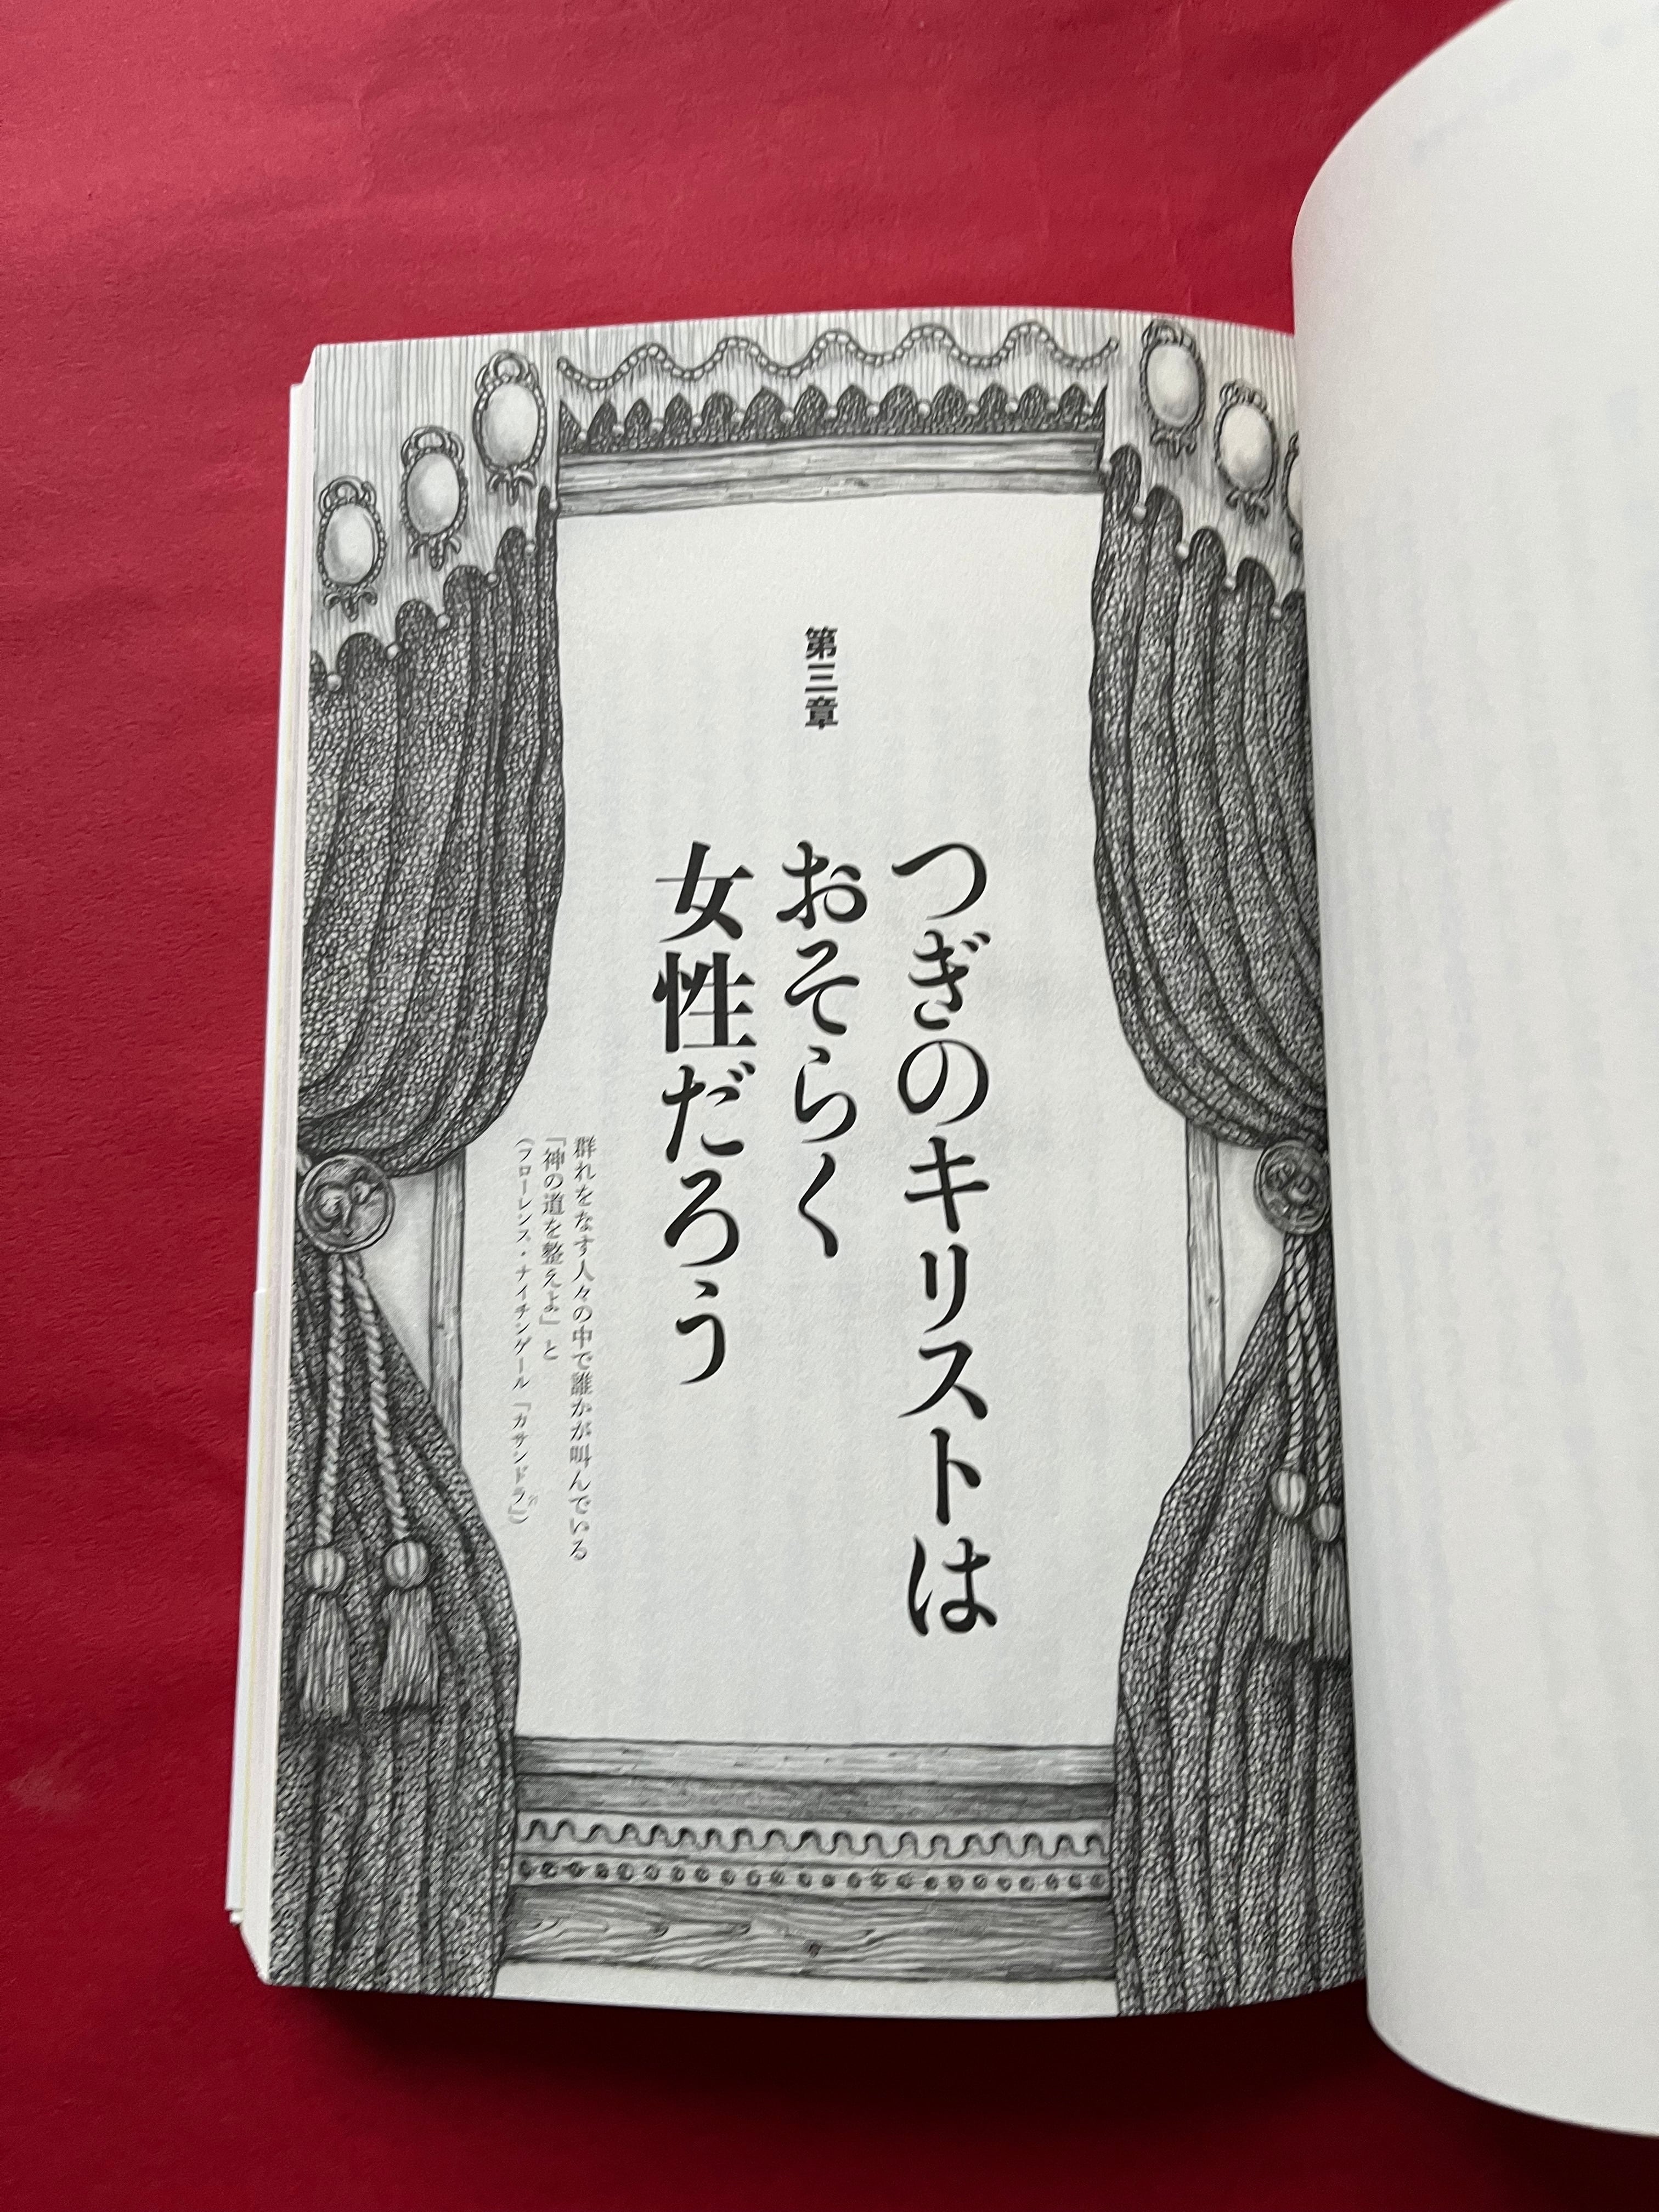 第三章
つぎのキリストは
おそらく
女性だろう
群れをなす人々の中で誰かが叫んでいる
「神の道を整えよ」と
(フローレンス・ナイチンゲール『カサンドラ』)